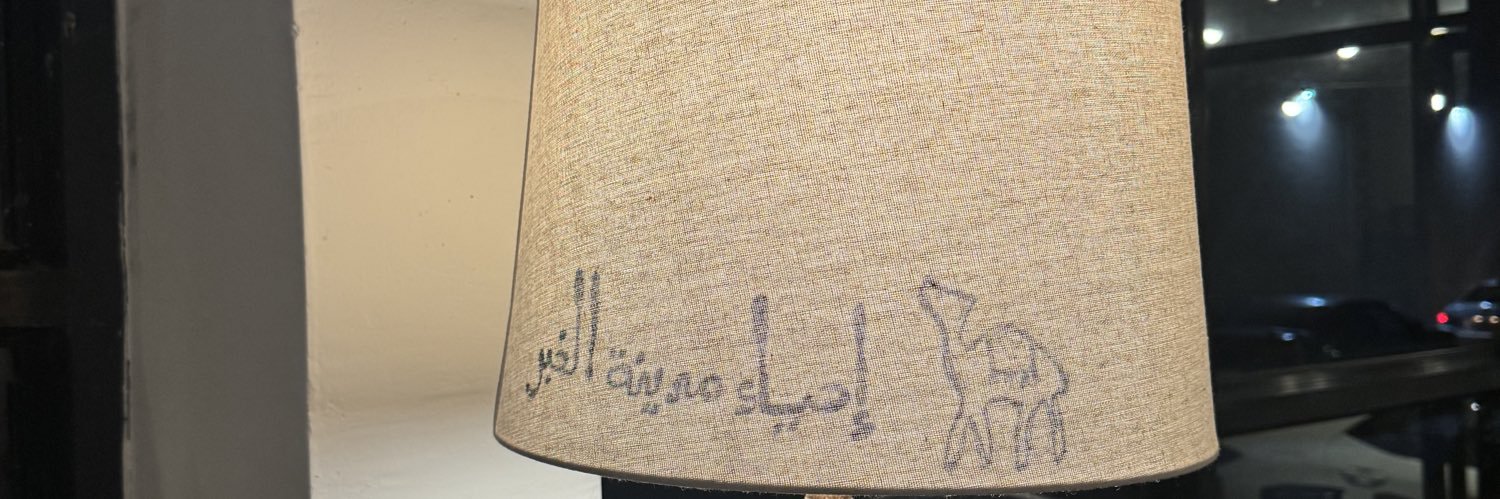 إحياء مدينة الخبر